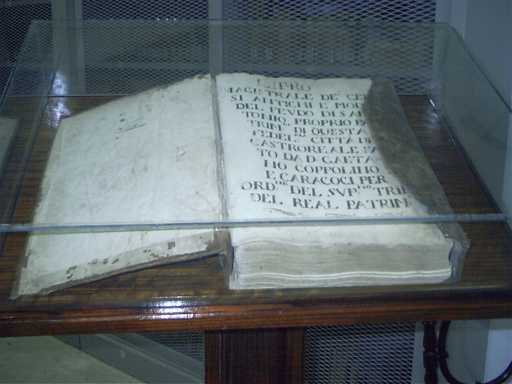 LIBRO
MAGISTRALE DE CE
SI ANTICHI E MO
DEL FEUDO DI S. AN
TONIO, PROPRIO
TRIM. DI QUESTA
FEDEL. CITTÀ DI
CASTROREALE
TO DA D. GAETA
NO COPPOLINO
E CARACOCI PER
ORD.NE DEL SVP.MO TRI
DEL REAL PATRIM